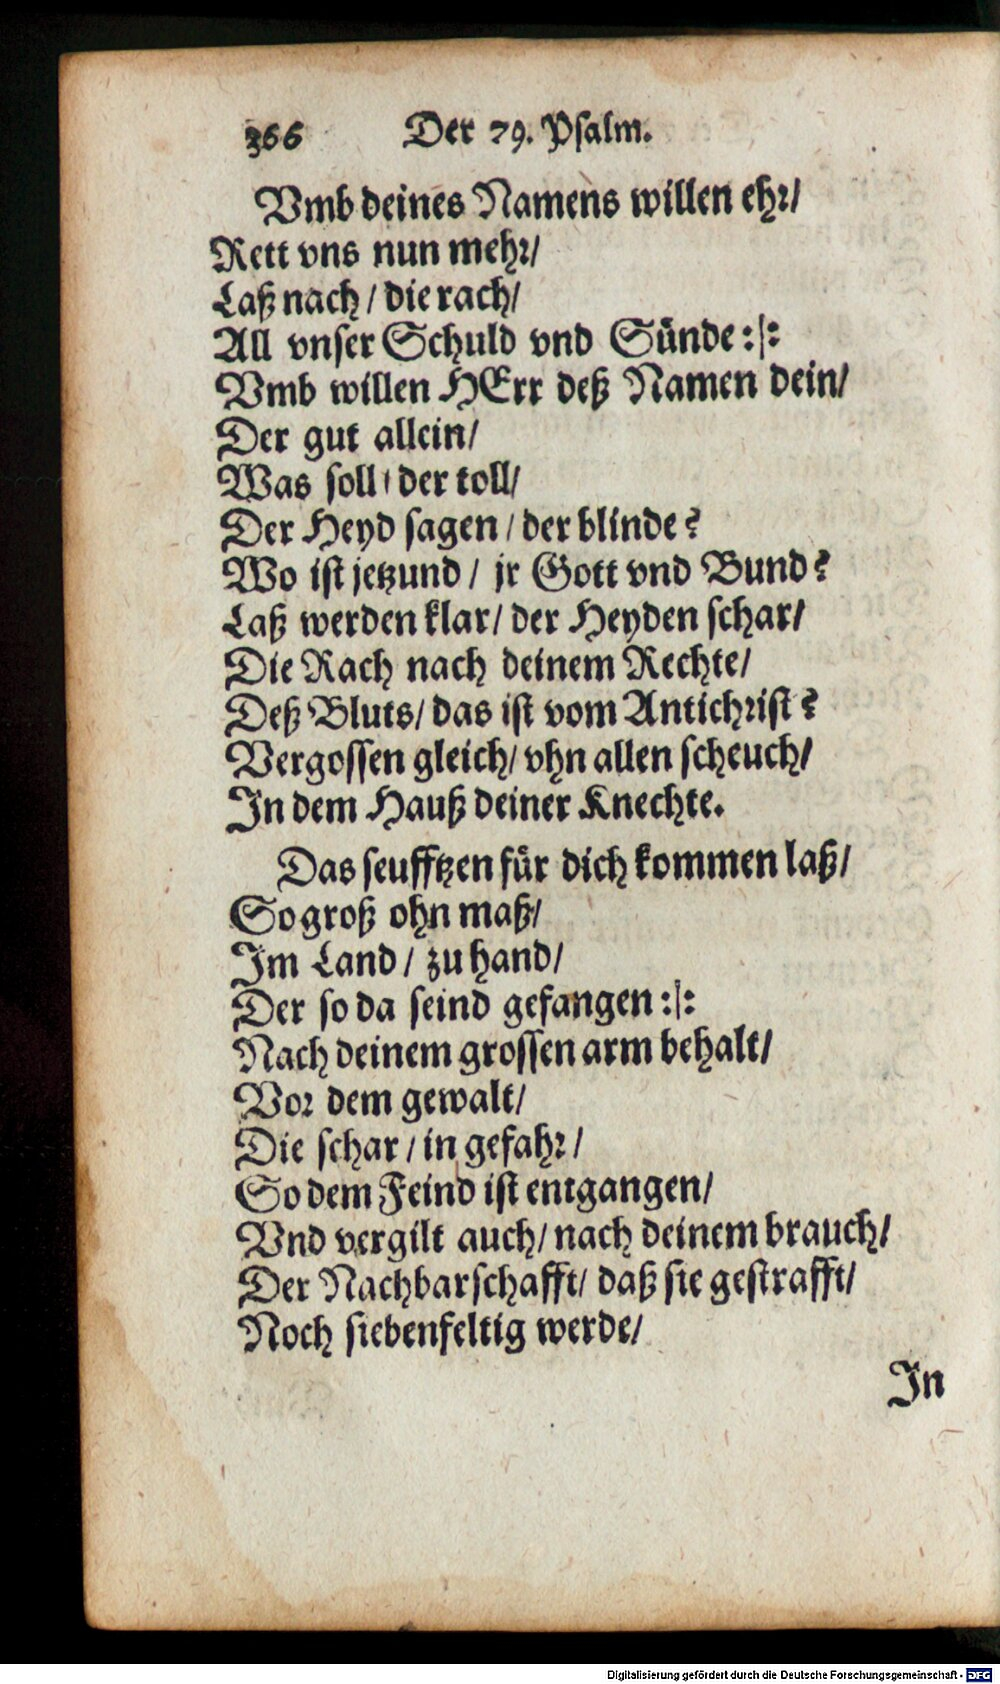 366 Der 79. Psalm.
Vmb deines Namens willen ehr/
Rett vns nun mehr/
Laß nach / die rach/
All vnser Schuld vnd Sünde :|:
Vmb willen HErr deß Namen dein/
Der gut allein/
Was soll / der toll/
Der Heyd sagen / der blinde?
Wo ist jetzund / jr Gott vnd Bund?
Laß werden klar/ der Heyden schar/
Die Rach nach deinem Rechte/
Deß Bluts/ das ist vom Antichrist?
Vergossen gleich/ vhn allen scheuch/
In dem Hauß deiner Knechte.
Das seufftzen für dich kommen laß/
So groß ohn maß/
Im Land / zu hand/
Der so da seind gefangen :|:
Nach deinem grossen arm behalt/
Vor dem gewalt/
Die schar / in gefahr /
So dem Feind ist entgangen/
Vnd vergilt auch/ nach deinem brauch/
Der Nachbarschafft/ daß sie gestrafft/
Noch siebenfeltig werde/
In
Digitalisierung gefördert durch die Deutsche Forschungsgemeinschaft - DFG